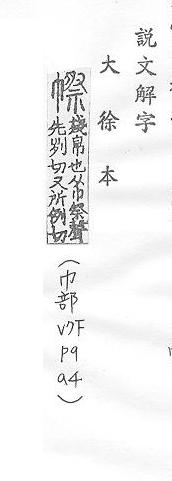 說文解字
大徐本
㡜
殘帛也从巾祭聲
先列切又所例切
（巾部 V7F P9 a4）